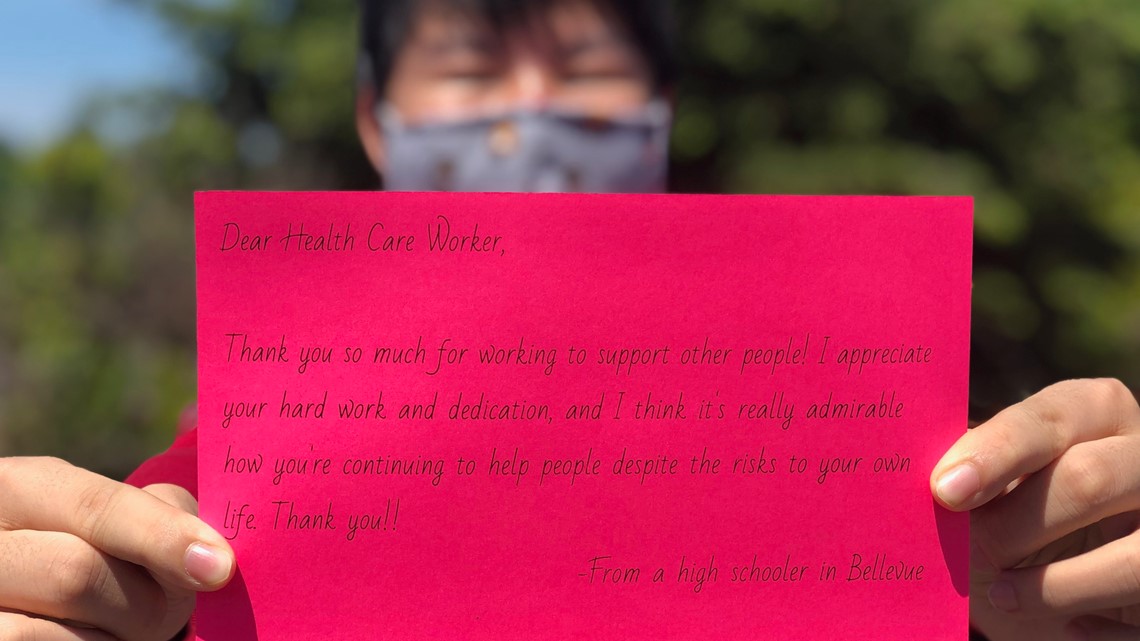 Dear Health Care Worker,
Thank you so much for working to support other people! I appreciate
your hard work and dedication, and I think it's really admirable
how you're continuing to help people despite the risks to your own
life. Thank you!!
-From a high schooler in Bellevue